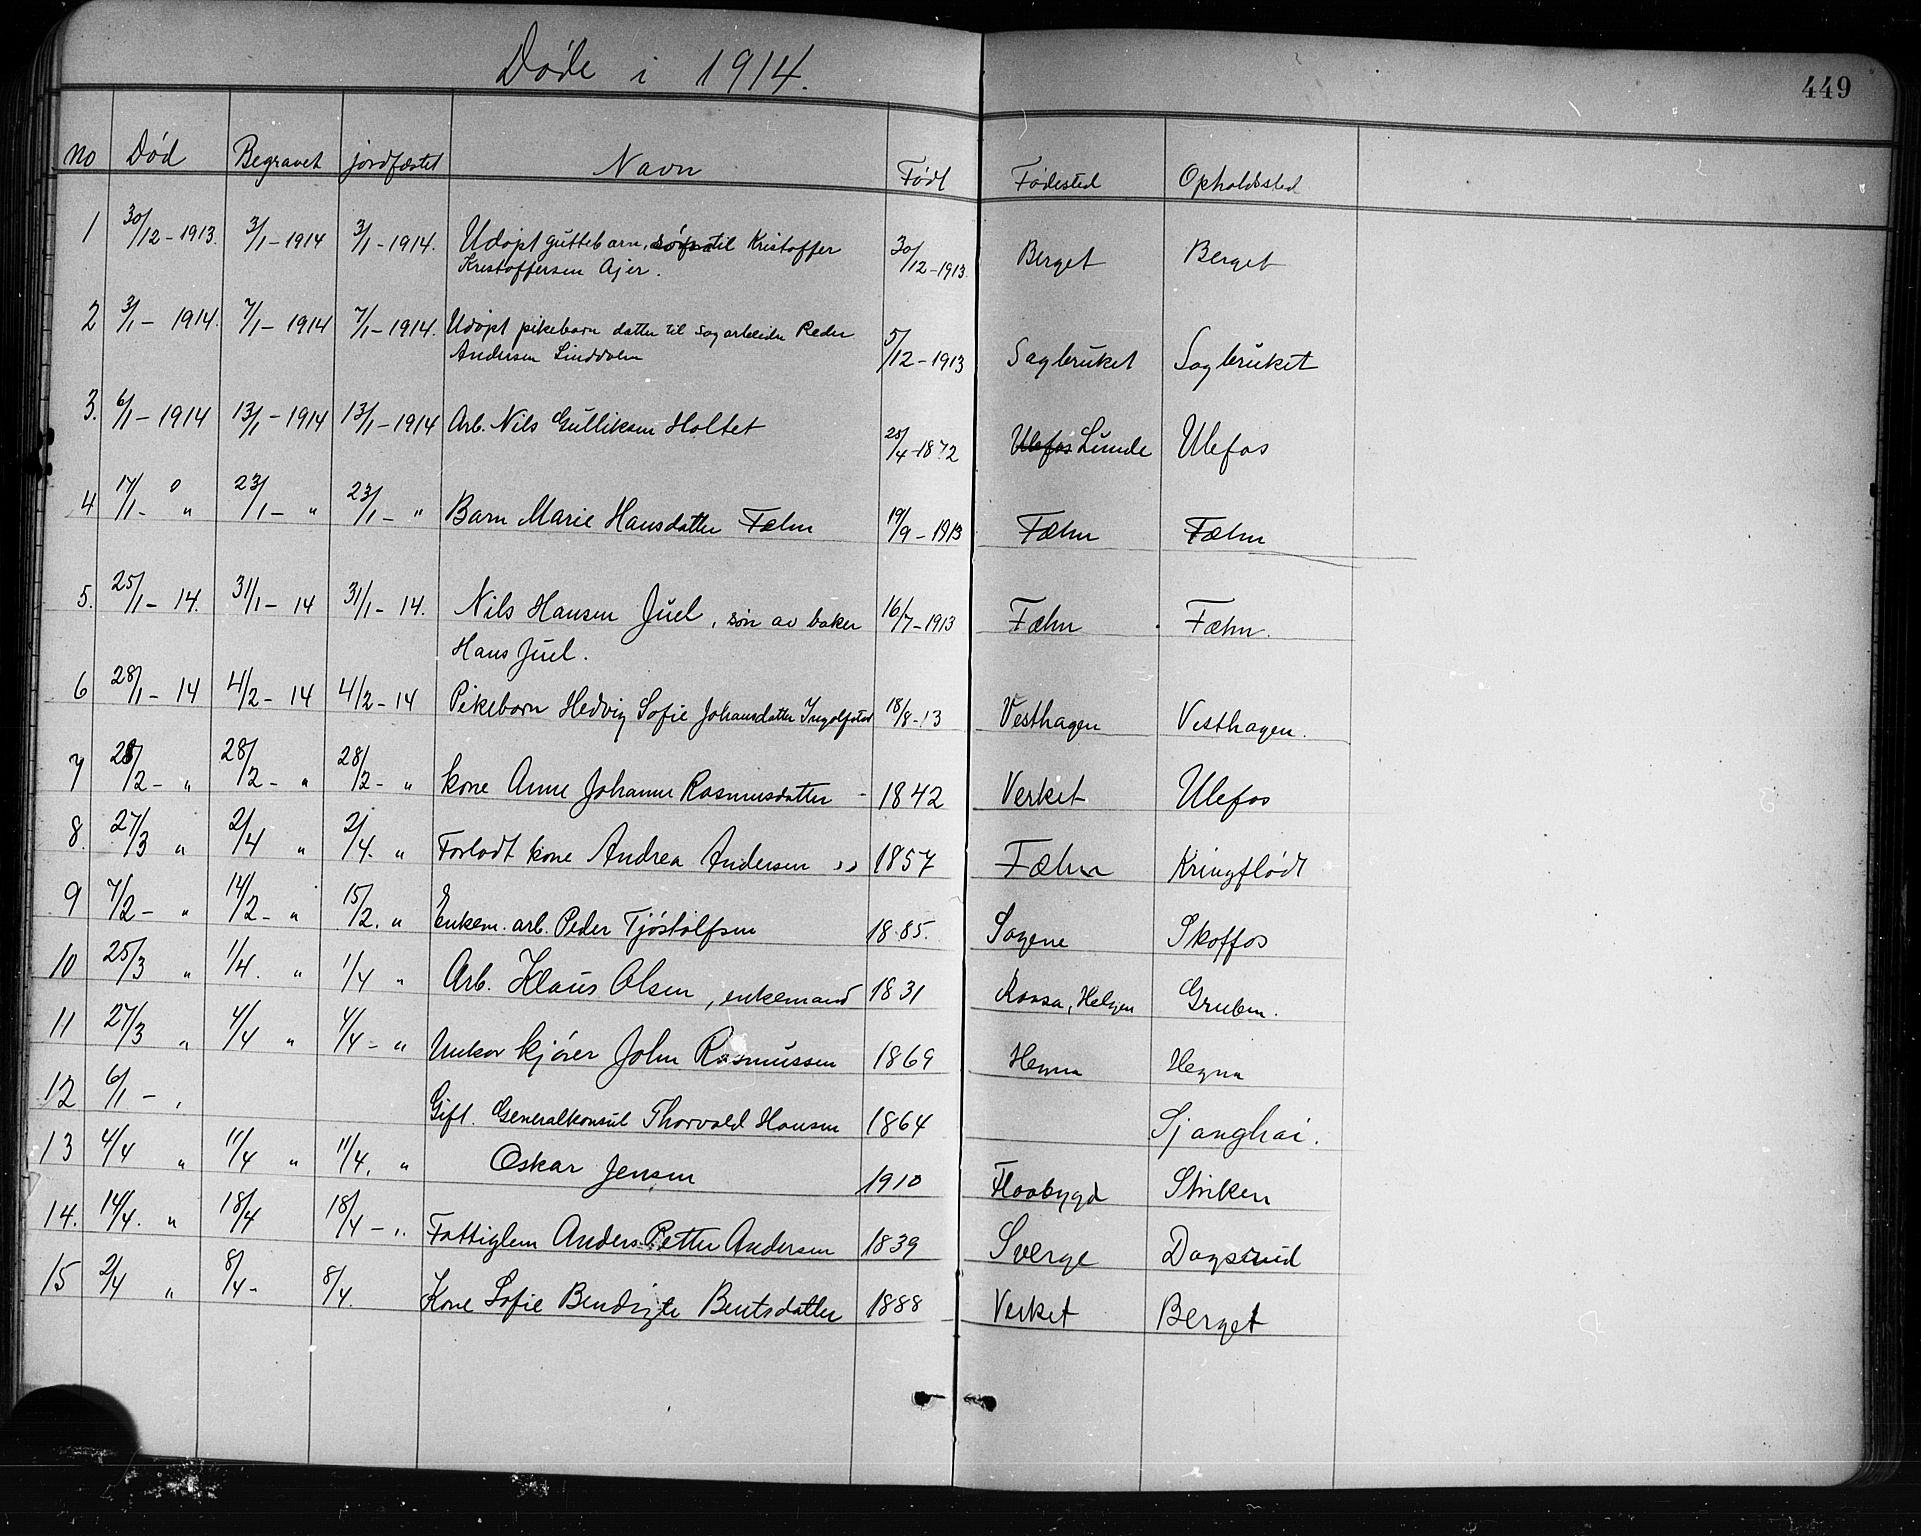 Døde i 1914.
449
No Død Begravet jordfæstet Navn Født Fødested Opholdssted
1 30/12-1913. 3/1-1914 3/1-1914. Udøpt guttebarn, til Kristoffer 30/12-1913 Berget Berget
Kristoffersen Ajer.
2 3/1- 1914. 7/1- 1914 7/1-1914. Udøpt pikebarn datter til sagarbeider Peder 5/12-1913 Sagbruket Sagbruket
Andersen Linddalen
3. 6/1- 1914 13/1-1914 13/1-1914 Arb. Nils Gulliksen Holtet 28/4-1872 Ulefos Lunde Ulefos
4 17/1- " 23/1- " 23/1- " Barn Marie Hansdatter Fæhn 19/9-1913 Fæhn Fæhn
5. 25/1- 14. 31/1- 14 31/1- 14. Nils Hansen Juel, søn av baker 16/7-1913 Fæhn Fæhn.
Hans Juel.
6 28/1- 14 4/2- 14 4/2- 14 Pikebarn Hedvig Sofie Johansdatter Ingolfstad 18/8-13 Vesthagen Vesthagen.
7 /2- " 28/2- " 28/2- " kone Anne Johanne Rasmusdatter - 1842 Verket Ulefos
8. 27/3 " 2/4 " 2/4. " Forladt kone Andrea Andersen " 1857 Fæhn Kringflødt
9 7/2- " 14/2- " 15/2. " Enkem. arb. Peder Tjøstolfsen 1885. Sagene Skotfos
10 25/3 " 1/4. " 1/4 " Arb. Klaus Olsen, enkemand 1831 Helgen Gruben.
11 27/3 " 4/4 " 4/4- " Unkar kjører John Rasmussen 1869 Hegna Hegna
12 6/1 - " Gift. Generalkonsul Thorvald Hansen 1864 Sjanghai.
13 4/4 " 11/4 " 11/4. " Oskar Jensen 1910 Flaabygd Striken
14. 14/4. " 18/4 18/4- " Fattiglem Anders Petter Andersen 1839 Sverge Dagsrud
15 2/4 " 8/4- 8/4. Kone Sofie Bendigte Bentsdatter 1888 Verket Berget